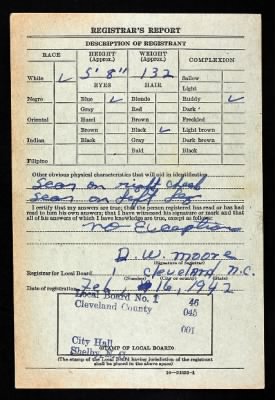 REGISTRAR'S REPORT
DESCRIPTION OF REGISTRANT
RACE HEIGHT (Approx.) WEIGHT (Approx.) COMPLEXION
5' 8" 132
White ✓ EYES HAIR Sallow
Light
Negro Blue ✓ Blonde Ruddy ✓
Gray Red Dark
Oriental Hazel Brown Freckled
Brown Black ✓ Light brown
Indian Black Gray Dark brown
Bald Black
Filipino
Other obvious physical characteristics that will aid in identification
Scar on right cheek
Scar on left leg
I certify that my answers are true; that the person registered has read or has had
read to him his own answers; that I have witnessed his signature or mark and that
all of his answers of which I have knowledge are true, except as follows:
No Exceptions
D. W. Moore
(Signature of registrar)
Registrar for Local Board 1 Cleveland N.C.
Date of registration Feb. 16, 1942
Local Board No. 1 46
Cleveland County 045
001
City Hall
Shelby, N. C.
(STAMP OF LOCAL BOARD)
(The stamp of the Local Board having jurisdiction of the registrant
shall be placed in the above space)